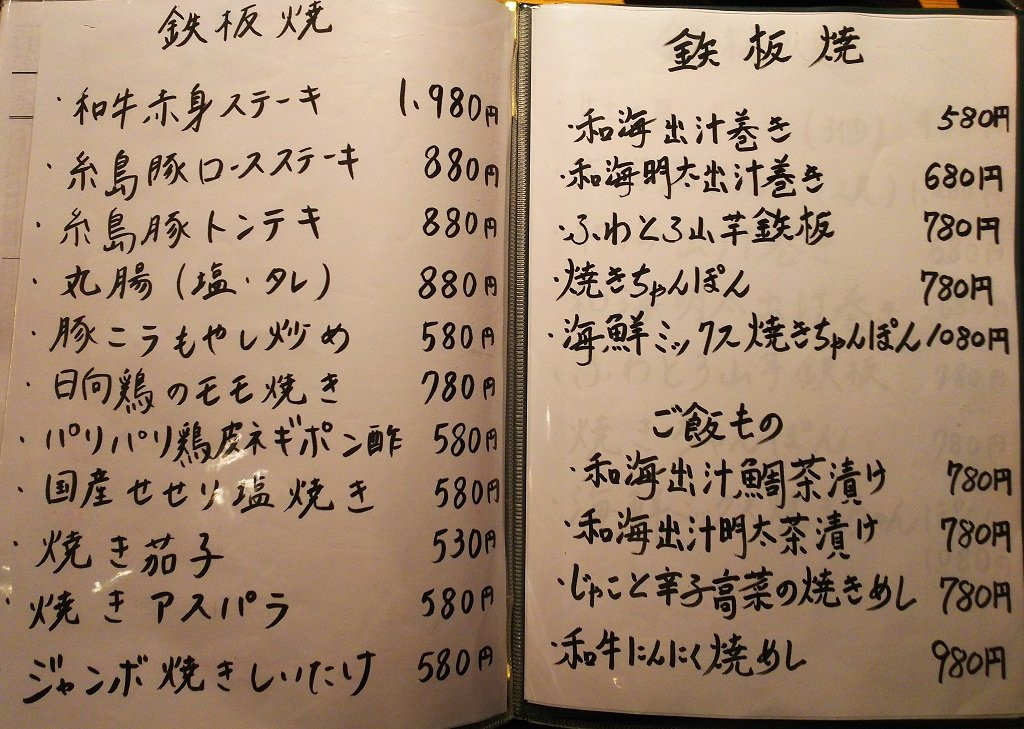 鉄板焼
・和牛赤身ステーキ 1,980円
・糸島豚ロースステーキ 880円
・糸島豚トンテキ 880円
・丸腸(塩・タレ) 880円
・豚こうもやし炒め 580円
・日向鶏のモモ焼き 780円
・パリパリ鶏皮ネギポン酢 580円
・国産せせり塩焼き 580円
・焼き茄子 530円
・焼きアスパラ 580円
・ジャンボ焼きしいたけ 580円
鉄板焼
・和海出汁巻き 580円
・和海明太出汁巻き 680円
・ふわとろ山芋鉄板 780円
・焼きちゃんぽん 780円
・海鮮ミックス焼きちゃんぽん 1080円
ご飯もの
・和海出汁鯛茶漬け 780円
・和海出汁明太茶漬け 780円
・じゃこと辛子高菜の焼きめし 780円
・和牛にんにく焼めし 980円